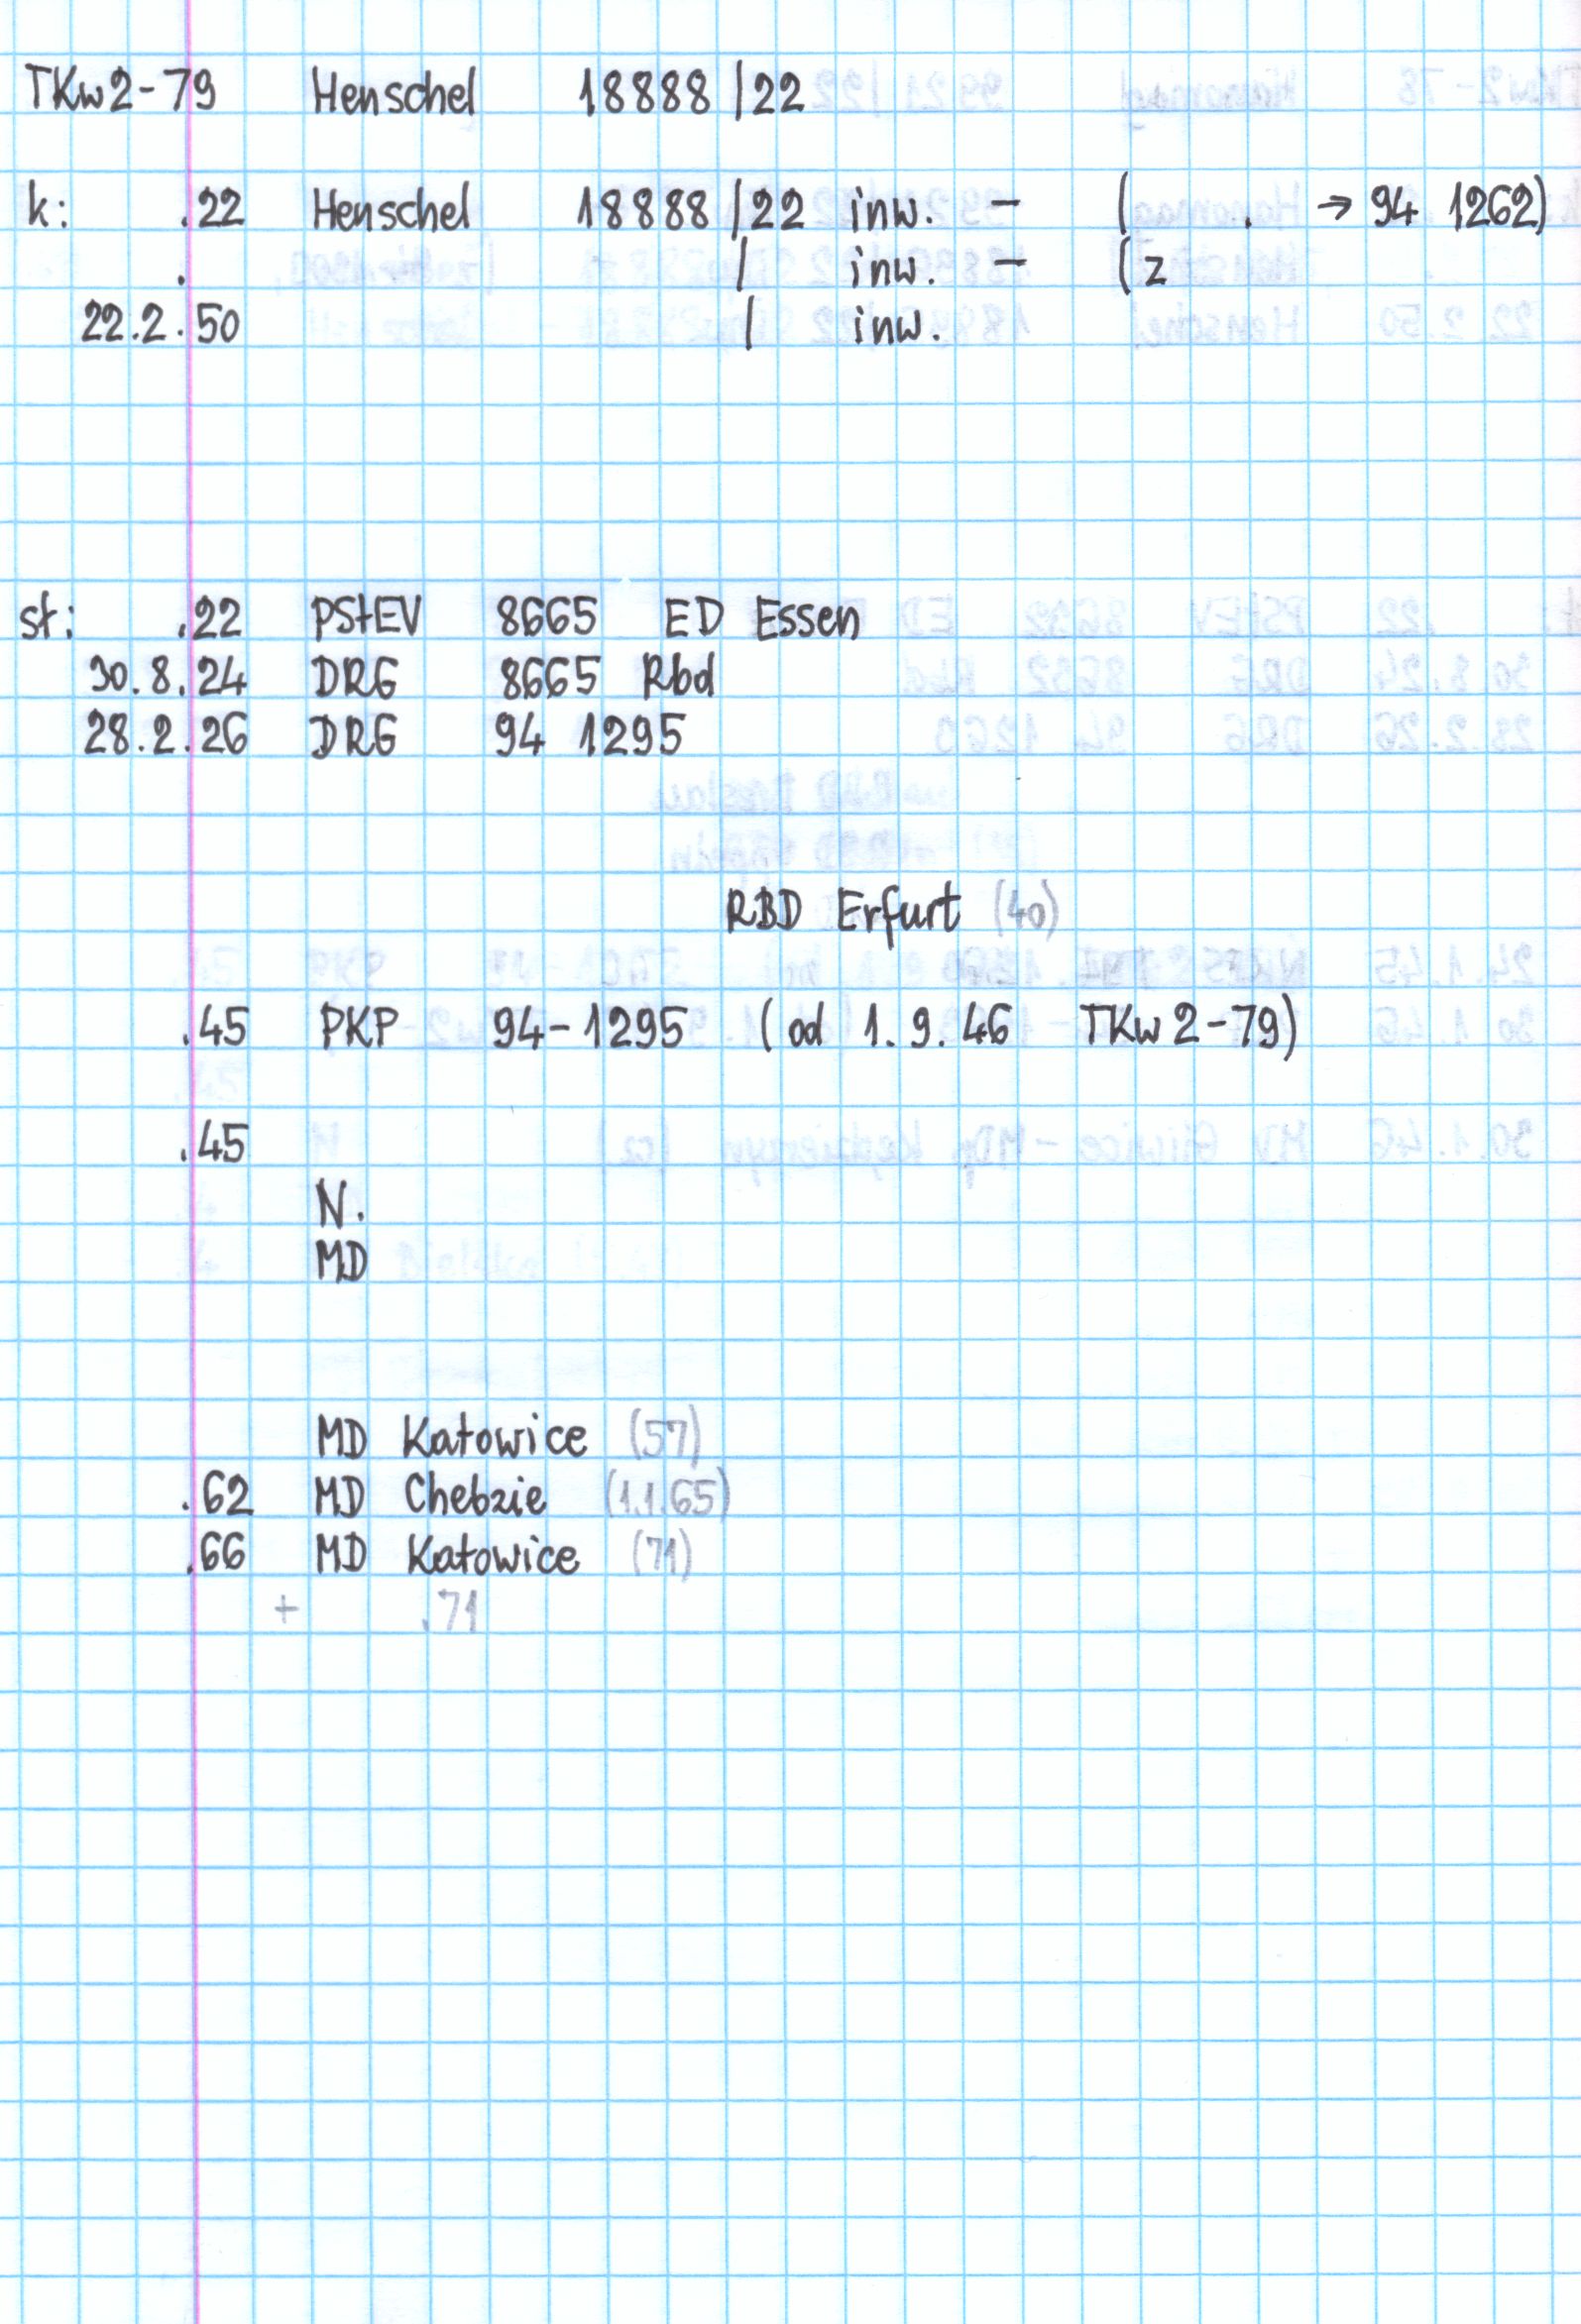 TKw2-79 Henschel 18888/22
k: .22 Henschel 18888/22 inw. - ( . → 94 1262)
. / inw. - (z
22.2.50 / inw.
st: .22 PStEV 8665 ED Essen
30.8.24 DRG 8665 Rbd
28.2.26 DRG 94 1295
RBD Erfurt (40)
.45 PKP 94-1295 (od 1.9.46 TKw2-79)
.45
N.
MD
MD Katowice (57)
.62 MD Chebzie (1.1.65)
.66 MD Katowice (71)
+ .71